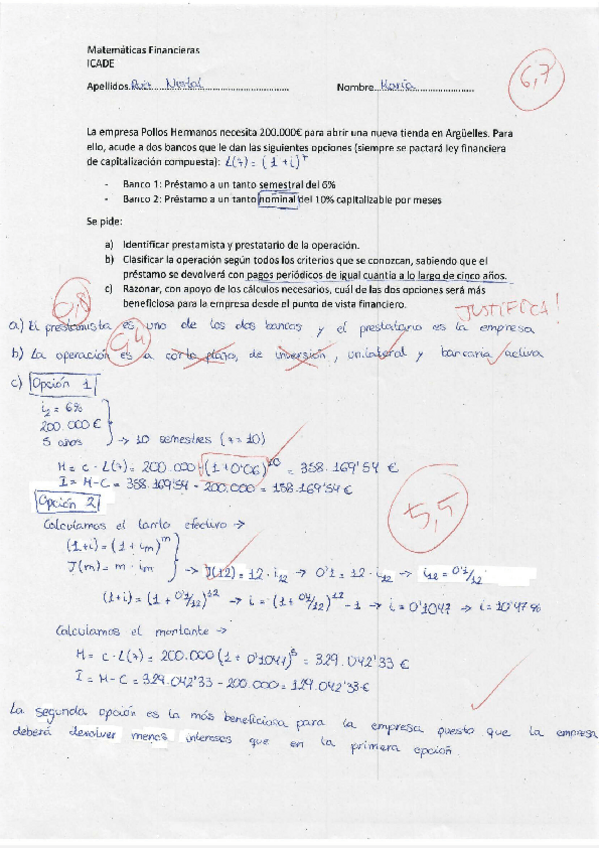 Matemáticas Financieras
ICADE
Apellidos Ruiz Nombre María
6,7
La empresa Pollos Hermanos necesita 200.000€ para abrir una nueva tienda en Argüelles. Para
ello, acude a dos bancos que le dan las siguientes opciones (siempre se pactará ley financiera
de capitalización compuesta): L(z) = (1+i)^z
- Banco 1: Préstamo a un tanto semestral del 6%
- Banco 2: Préstamo a un tanto nominal del 10% capitalizable por meses
Se pide:
a) Identificar prestamista y prestatario de la operación.
b) Clasificar la operación según todos los criterios que se conozcan, sabiendo que el
préstamo se devolverá con pagos periódicos de igual cuantía a lo largo de cinco años.
c) Razonar, con apoyo de los cálculos necesarios, cuál de las dos opciones será más
beneficiosa para la empresa desde el punto de vista financiero.
0,8
JUSTIFICA!
a) El prestamista es uno de los dos bancos y el prestatario es la empresa
0,4
b) La operación es a corto plazo, de inversión, unilateral y bancaria activa
c) Opción 1
i₂ = 6%
200.000€
5 años → 10 semestres (z = 10)
M = C · L(z) = 200.000 · (1+0'06)^10 = 358.169'54 €
I = M - C = 358.169'54 - 200.000 = 158.169'54 €
Opción 2
5,5
Calculamos el tanto efectivo →
(1+i) = (1+im)^m
J(m) = m · im
→ J(12) = 12 · i₁₂ → 0'1 = 12 · i₁₂ → i₁₂ = 0'1/12
(1+i) = (1 + 0'1/12)^12 → i = (1 + 0'1/12)^12 - 1 → i = 0'1047 → i = 10'47%
Calculamos el montante →
M = C · L(z) = 200.000 (1 + 0'1047)^5 = 329.042'33 €
I = M - C = 329.042'33 - 200.000 = 129.042'33 €
La segunda opción es la más beneficiosa para la empresa puesto que la empresa
deberá devolver menos intereses que en la primera opción.